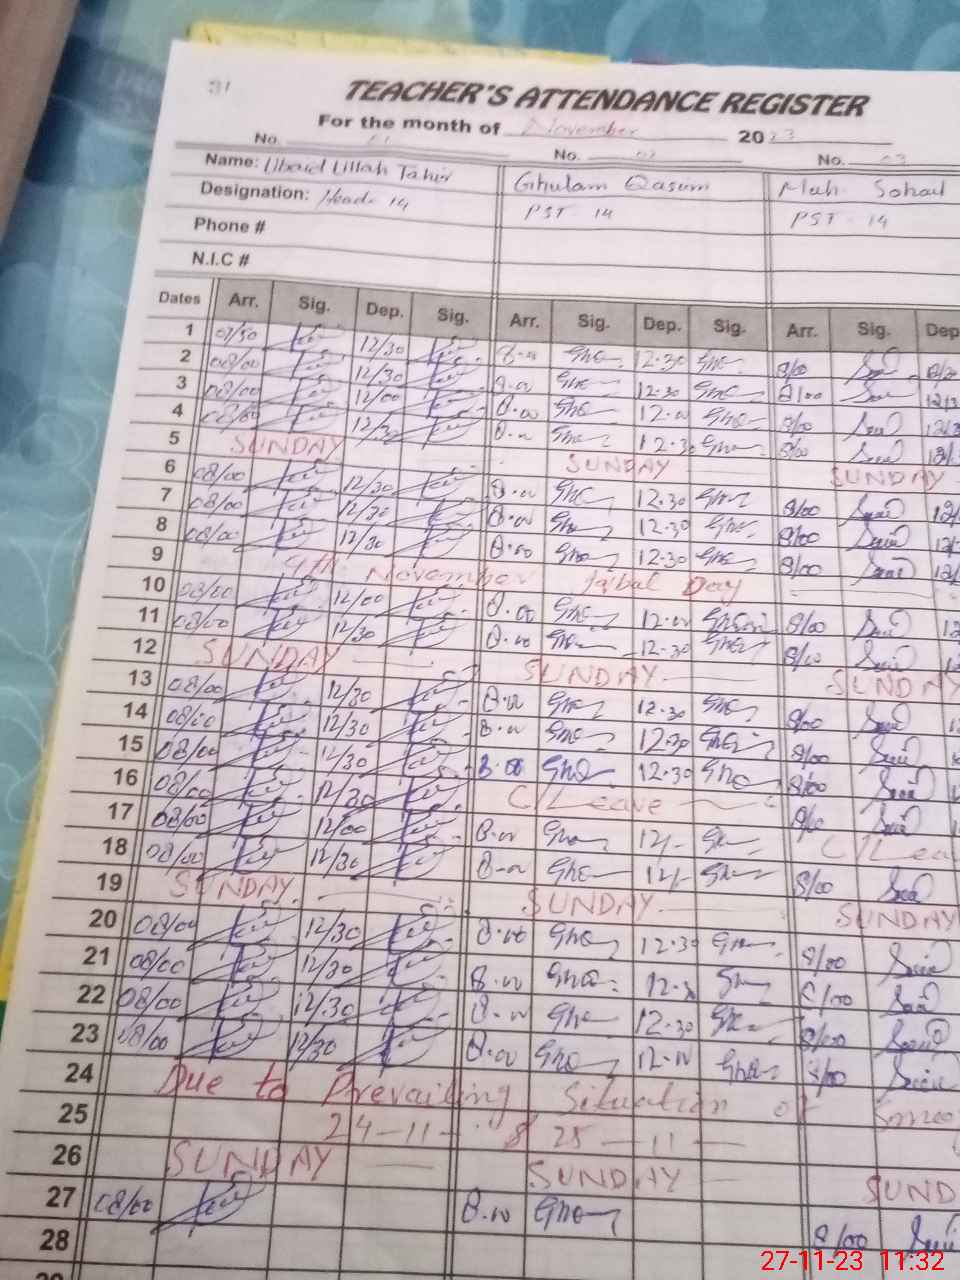 31
TEACHER'S ATTENDANCE REGISTER
For the month of November 2023
No. 01 No. 02 No. 03
Name: Ubaid Ullah Tahir Ghulam Qasim Muh. Sohail
Designation: Head 14 PST - 14 PST - 14
Phone #
N.I.C #
Dates Arr. Sig. Dep. Sig. Arr. Sig. Dep. Sig. Arr. Sig. Dep
1 07/50 12/30 8.00 12.30 8/00
2 08/00 12/30 8.00 12.30 8/00
3 08/00 12/00 8.00 12.00 8/00
4 08/00 12/30 8.00 12.30 8/00
5 SUNDAY SUNDAY SUNDAY
6 08/00 12/30 8.00 12.30 8/00
7 08/00 12/30 8.00 12.30 8/00
8 08/00 12/30 8.00 12.30 8/00
9 9th November Iqbal Day
10 08/00 12/00 8.00 12.00 8/00
11 08/00 12/30 8.00 12.30 8/00
12 SUNDAY SUNDAY SUNDAY
13 08/00 12/30 8.00 12.30 8/00
14 08/00 12/30 8.00 12.30 8/00
15 08/00 12/30 8.00 12.30 8/00
16 08/00 12/30 C/Leave 8/00
17 08/00 12/00 8.00 12/- C/Lea
18 08/00 12/30 8.00 12/- 8/00
19 SUNDAY SUNDAY SUNDAY
20 08/00 12/30 8.00 12.30 8/00
21 08/00 12/30 8.00 8/00
22 08/00 12/30 8.00 12.30 8/00
23 08/00 12/30 8.00 8/00
24 Due to Prevailing Situation of Smog
25 24-11- & 25-11-
26 SUNDAY SUNDAY SUND
27 08/00 8.00 8/00
28
29
27-11-23 11:32